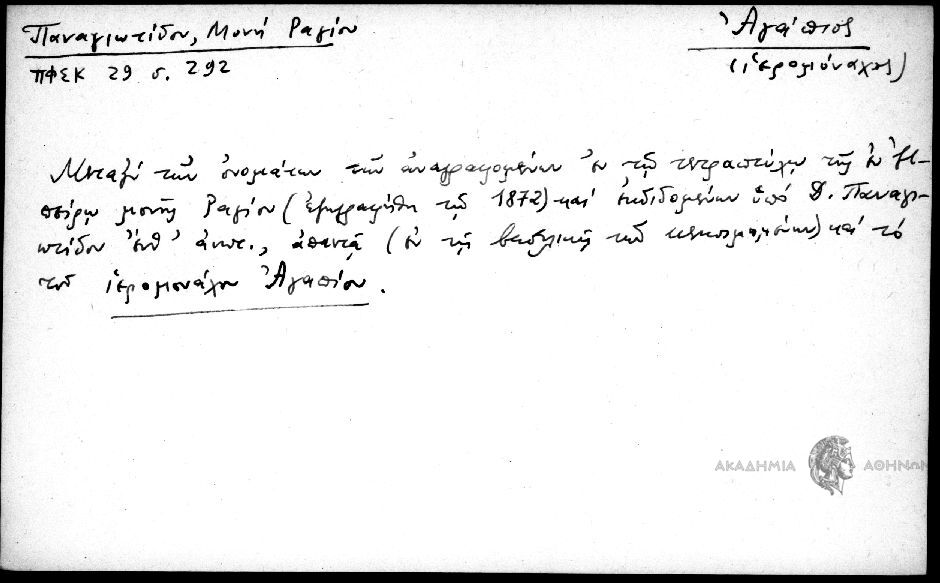 Παναγιωτίδου, Μονή Ραγίου
ΠΦΕΚ 29 σ. 292
Ἀγάπιος
(ἱερομόναχος)
Μεταξύ τῶν ὀνομάτων τῶν ἀναγραφομένων ἐν τῷ τετραπτύχῳ τῆς ἐν Ἠ-
πείρῳ μονῆς Ραγίου (ἐγράφη τῷ 1872) καί ἐκδιδομένων ὑπό Δ. Παναγι-
ωτίδου ἔνθ' ἀνωτ., ἀπαντᾷ (ἐν τῆς τῶν κεκοιμημένων) καί τό
τοῦ ἱερομονάχου Ἀγαπίου.
ΑΚΑΔΗΜΙΑ ΑΘΗΝΩΝ